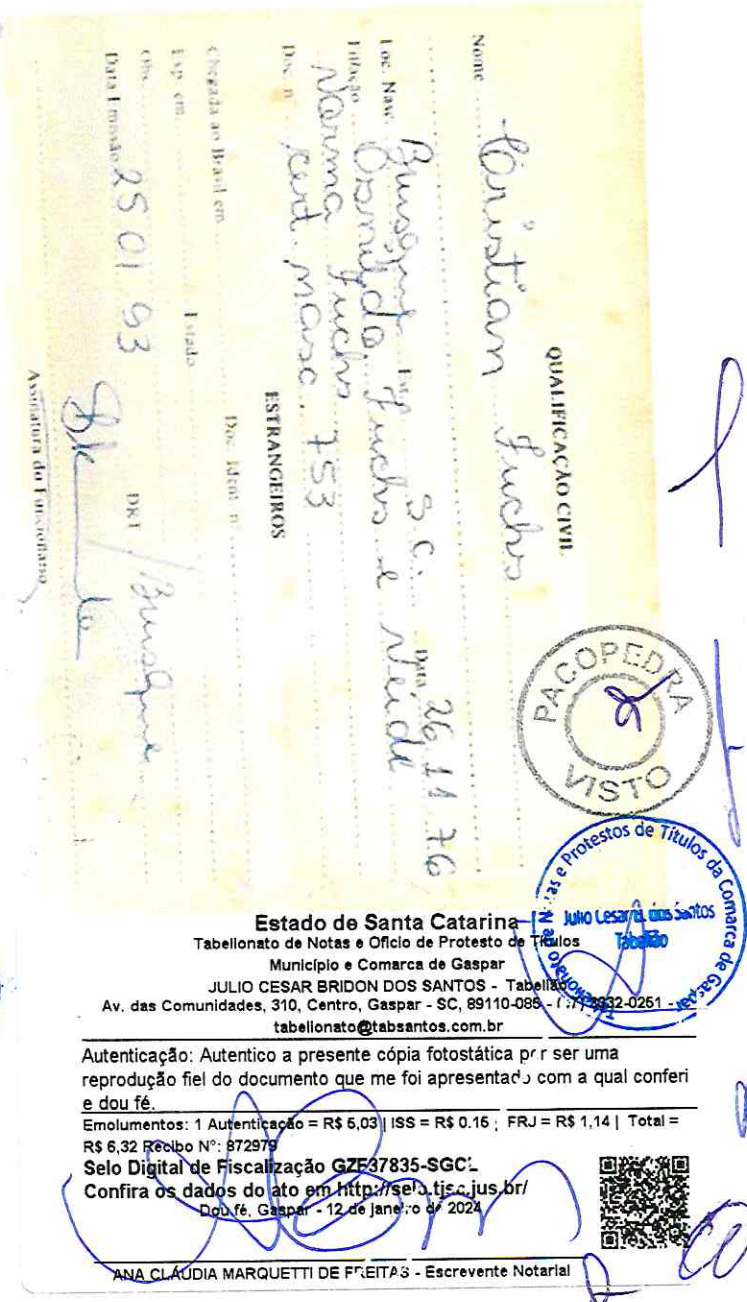 QUALIFICAÇÃO CIVIL
Nome Cristian Fuchs
Loc. Nasc. Brusque Est. S.C. Data 26 11 76
Filação Osnildo Fuchs e Neide
Norma Fuchs
Doc. n. cert. nasc. 753
ESTRANGEIROS
Chegada ao Brasil em Doc. Ident. n.
Exp. em Estado
Obs.
Data Emissão 25 01 93 DRT / Brusque
Assinatura do Funcionário
PACOPEDRA
VISTO
Tabelionato de Notas e Protestos de Títulos da Comarca de Gaspar
Julio Cesar B. dos Santos
Tabelião
Estado de Santa Catarina
Tabelionato de Notas e Oficio de Protesto de Títulos
Município e Comarca de Gaspar
JULIO CESAR BRIDON DOS SANTOS - Tabelião
Av. das Comunidades, 310, Centro, Gaspar - SC, 89110-085 - (47) 3332-0251 -
tabelionato@tabsantos.com.br
Autenticação: Autentico a presente cópia fotostática por ser uma
reprodução fiel do documento que me foi apresentado com a qual conferi
e dou fé.
Emolumentos: 1 Autenticação = R$ 5,03 | ISS = R$ 0.15 ; FRJ = R$ 1,14 | Total =
R$ 6,32 Recibo Nº: 872979
Selo Digital de Fiscalização GZF37835-SGCL
Confira os dados do ato em http://selo.tjsc.jus.br/
Dou fé, Gaspar - 12 de janeiro de 2024
ANA CLÁUDIA MARQUETTI DE FREITAS - Escrevente Notarial